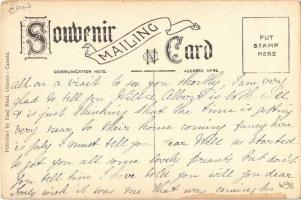 CAN
Souvenir
MAILING
Card
PUT
STAMP
HERE
COMMUNICATION HERE.
ADDRESS HERE.
Published by Dall Read, Ottawa - Canada.
all on a visit to see you shortly, I am very
glad to tell you Hilda & Albert is to
is just thinking that the time is getting
very near to their home coming fancy her
is July I must tell you dear Will as started
to get you all some lovely presents but don't
you tell him I have told you will you dear
I only wish it was me that was coming to